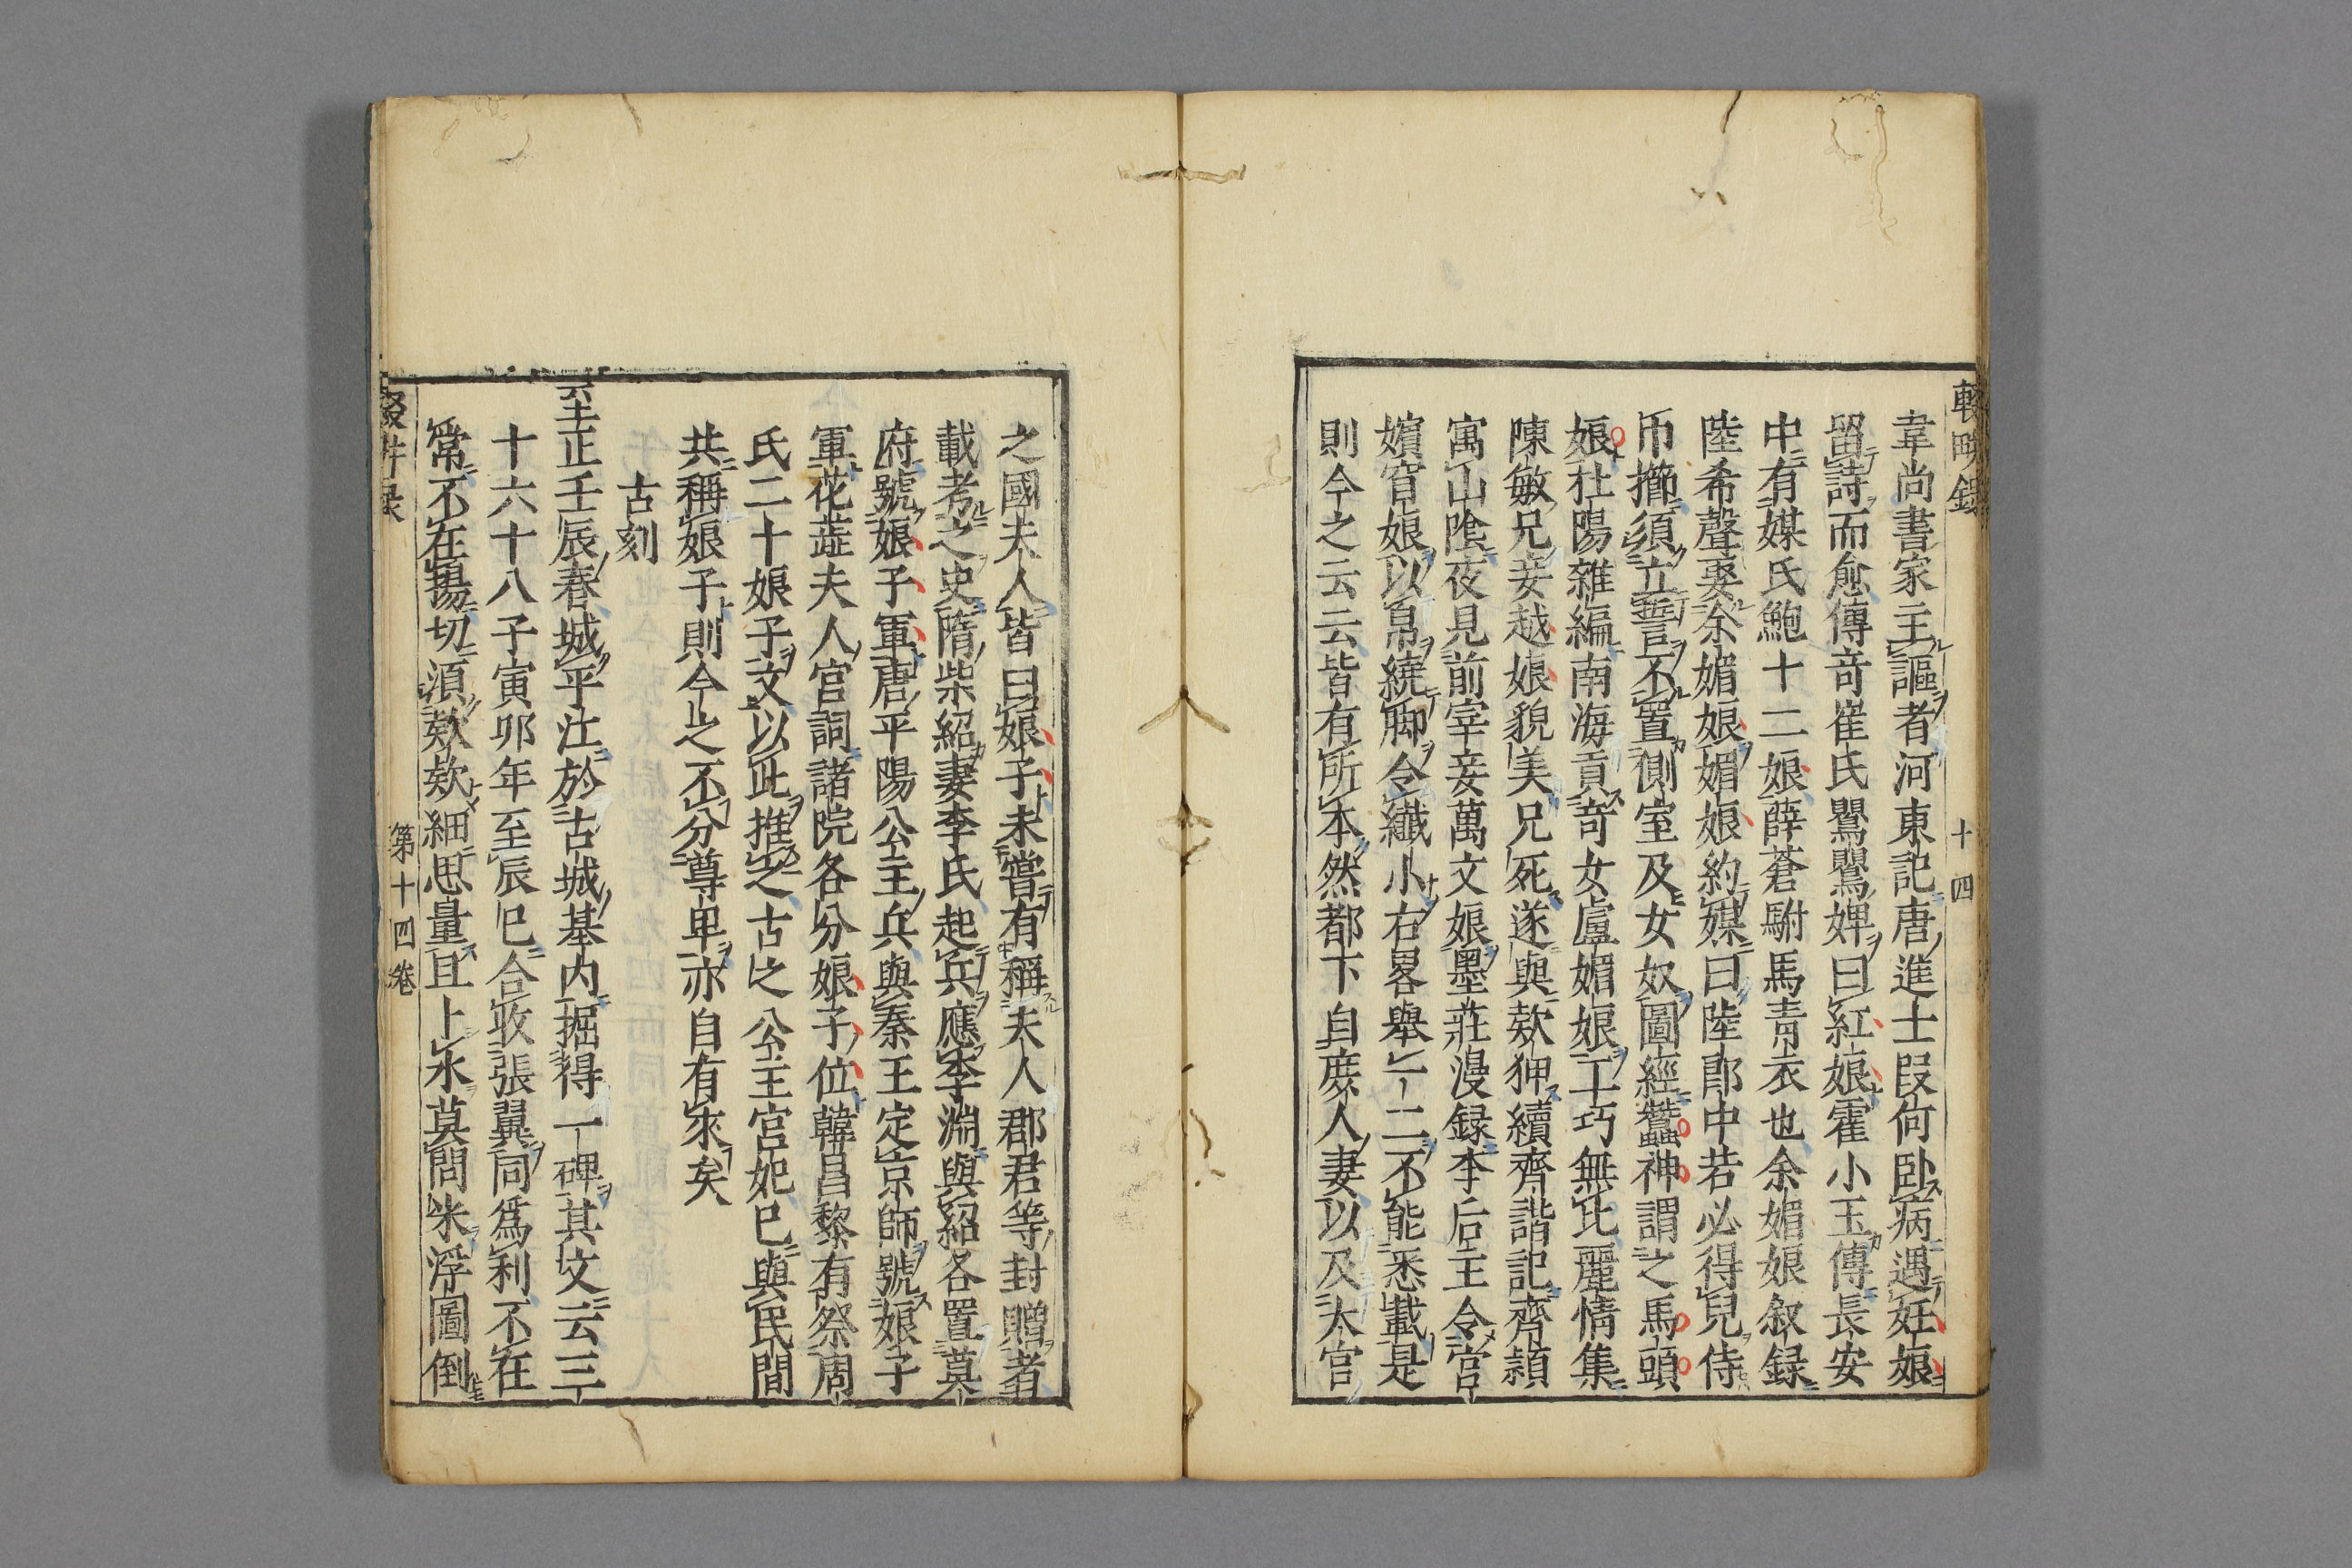 輟畊錄
十四
韋尚書家主謳者河東記唐進士段何臥病遇妊娘
留詩而愈傳竒崔氏鸎鸎婢曰紅娘霍小玉傳長安
中有媒氏鮑十二娘薛蒼駙馬青衣也余媚娘叙録
陸希聲娶余媚娘媚娘約媒曰陸郎中若必得兒侍
巾櫛須立誓不置側室及女奴圖經蠶神謂之馬頭
娘杜陽雜編南海貢竒女盧媚娘工巧無比麗情集
陳敏兄妾越娘貌美兄死遂與欵狎續齊諧記齊頴
寓山陰夜見前宰妾萬文娘墨莊漫録李后主令宮
嬪窅娘以帛繞脚令纖小右畧舉一二不能悉載是
則今之云云皆有所本然都下自庶人妻以及大官
之國夫人皆曰娘子未嘗有稱夫人郡君等封贈者
載考之史隋柴紹妻李氏起兵應李淵與紹各置莫
府號娘子軍唐平陽公主兵與秦王定京師號娘子
軍花蕋夫人宮詞諸院各分娘子位韓昌黎有祭周
氏二十娘子文以此推之古之公主宮妃已與民間
共稱娘子則今之不分尊卑亦自有來矣
古刻
至正壬辰春城平江於古城基内掘得一碑其文云三
十六十八子寅卯年至辰巳合收張翼同爲利不在
常不在揚切須欵欵細思量且卜水莫問米浮圖倒
第十四巻